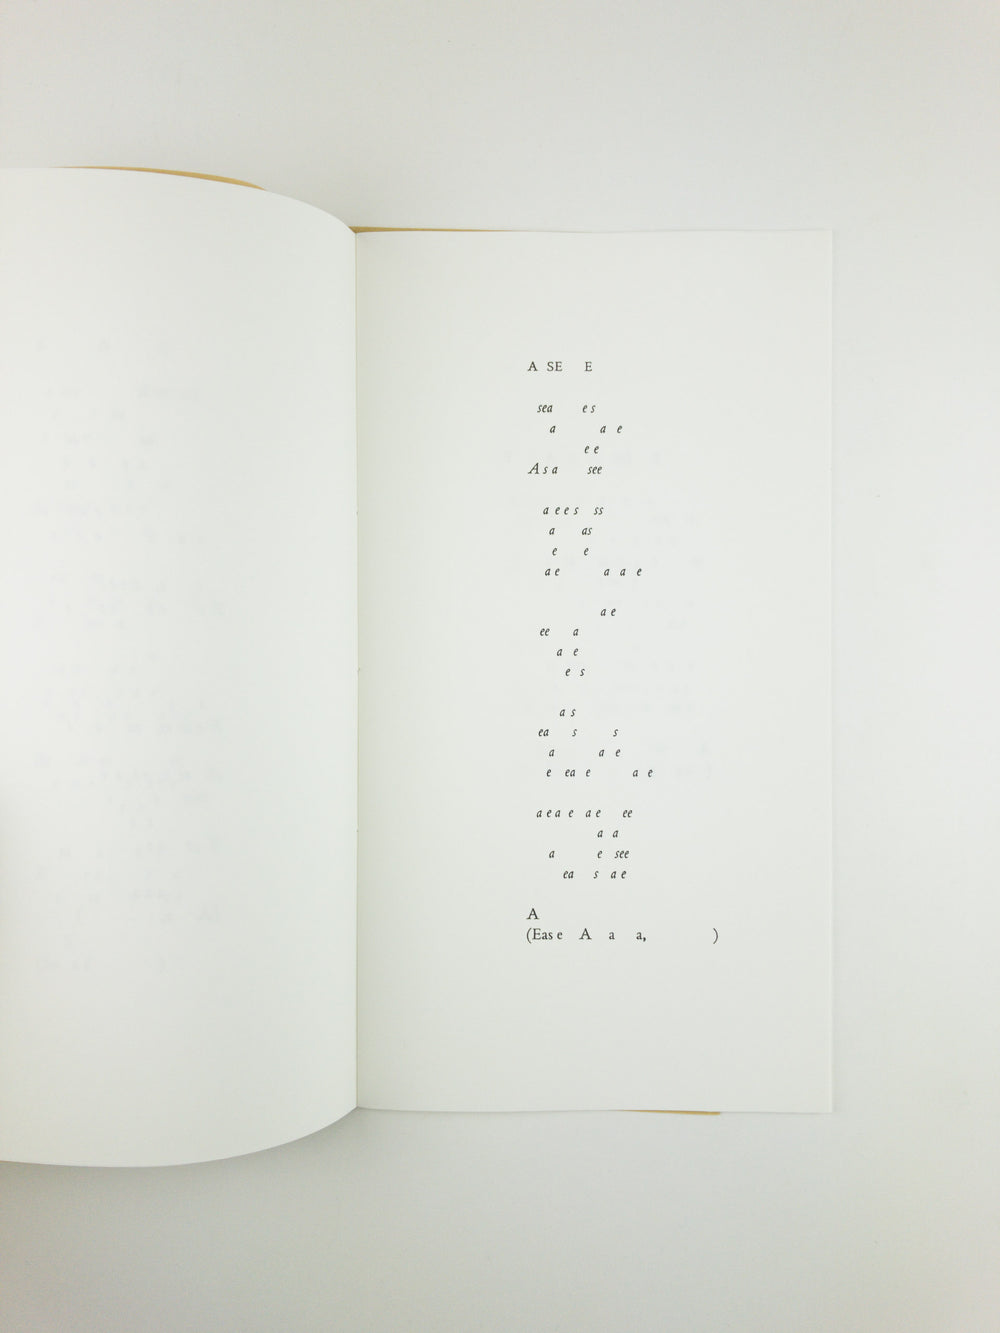 A SE E
sea e s
a a e
e e
A s a see
a e e s ss
a as
e e
a e a a e
a e
ee a
a e
e s
a s
ea s s
a a e
e ea e a e
a e a e a e ee
a a
a e see
ea s a e
A
(Eas e A a a, )